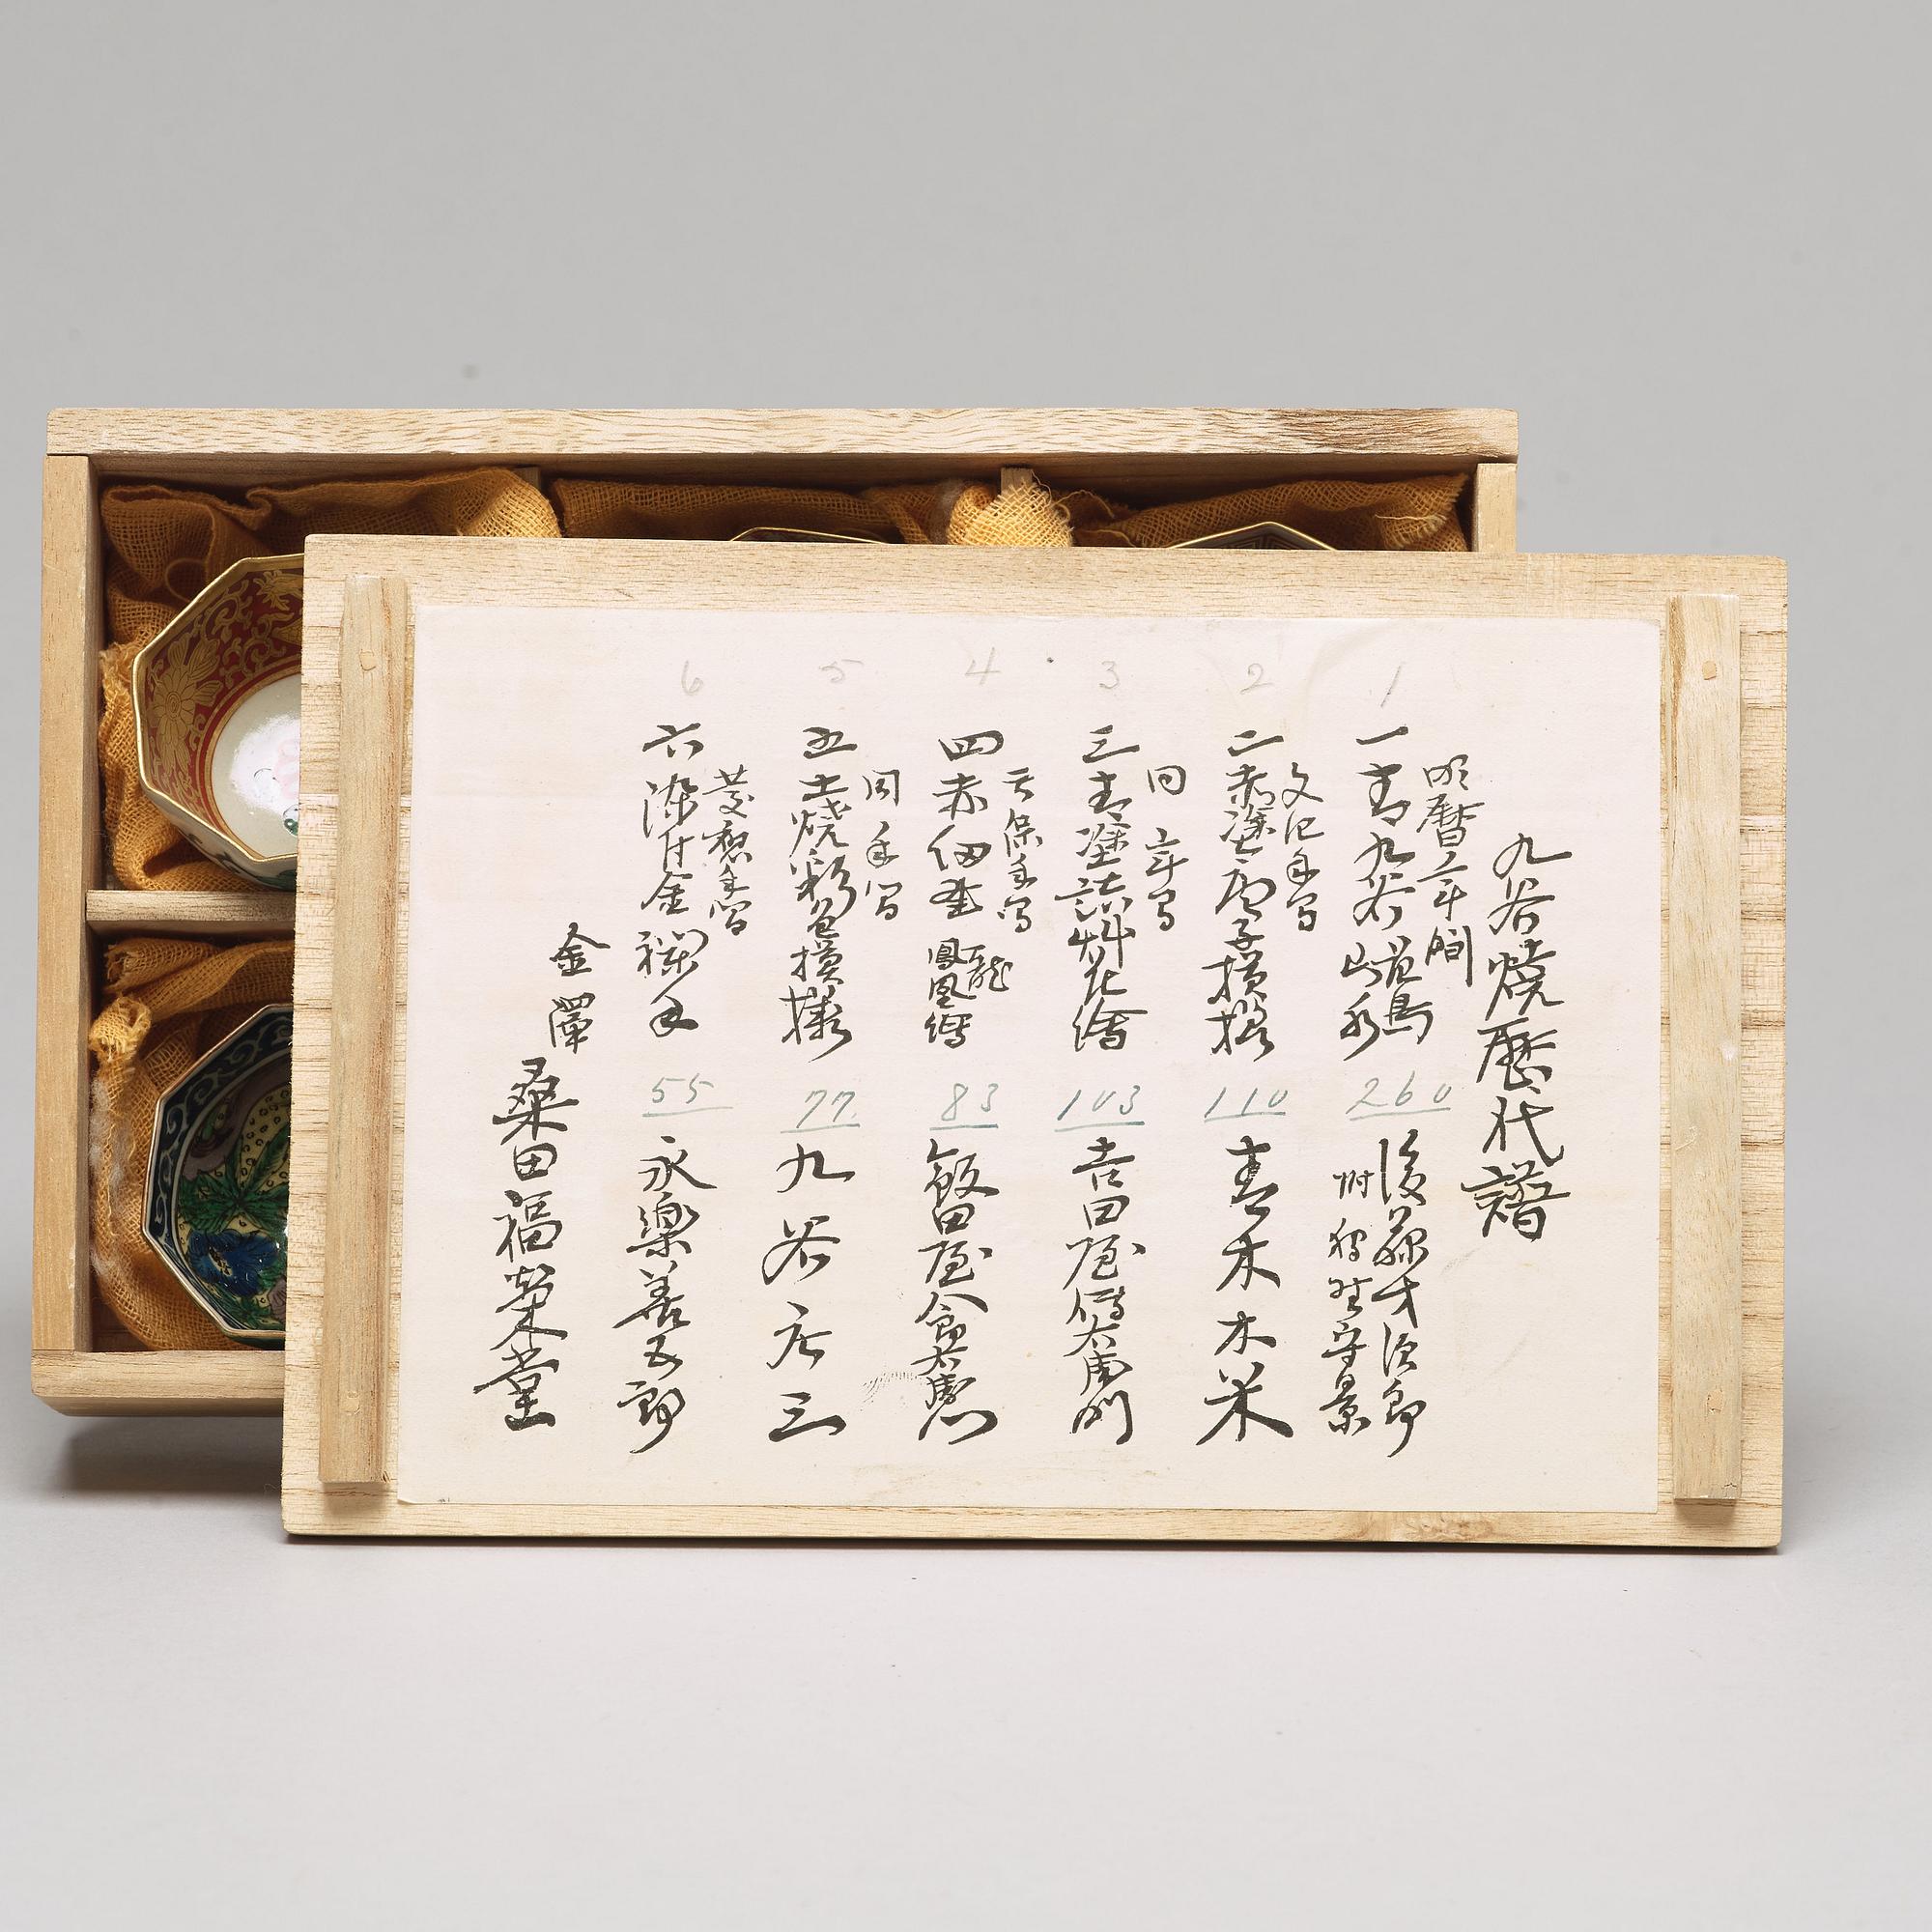 九谷焼歴代譜
1
明暦年間
一 青九谷 花鳥 山水
260
後藤才次郎
附 狩野守景
2
文化年間
二 赤塗唐子模様
110
青木木米
3
同 年間
三 青塗詰 花絵
103
吉田屋傳右衛門
4
天保年間
四 赤細画 龍 鳳凰絵
83
飯田屋八郎右衛門
5
同 年間
五 土焼彩色模様
77
九谷庄三
6
慶應年間
六 染付金襴手
55
永楽善五郎
金澤
桑田福栄堂